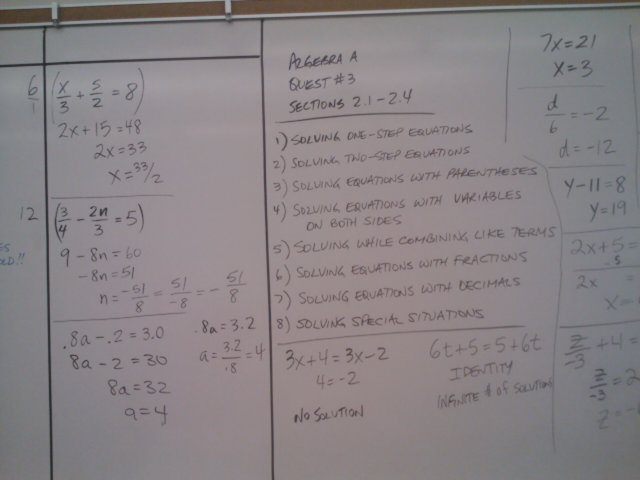 6/1 (x/3 + 5/2 = 8)
2x + 15 = 48
2x = 33
x = 33/2
12 (3/4 - 2n/3 = 5)
9 - 8n = 60
-8n = 51
n = -51/8 = 51/-8 = - 51/8
.8a - .2 = 3.0
8a - 2 = 30
8a = 32
a = 4
.8a = 3.2
a = 3.2/.8 = 4
ALGEBRA A
QUEST #3
SECTIONS 2.1 - 2.4
1) SOLVING ONE-STEP EQUATIONS
2) SOLVING TWO-STEP EQUATIONS
3) SOLVING EQUATIONS WITH PARENTHESES
4) SOLVING EQUATIONS WITH VARIABLES
ON BOTH SIDES
5) SOLVING WHILE COMBINING LIKE TERMS
6) SOLVING EQUATIONS WITH FRACTIONS
7) SOLVING EQUATIONS WITH DECIMALS
8) SOLVING SPECIAL SITUATIONS
3x + 4 = 3x - 2
4 = -2
NO SOLUTION
6t + 5 = 5 + 6t
IDENTITY
INFINITE # OF SOLUTIONS
7x = 21
x = 3
d/6 = -2
d = -12
y - 11 = 8
y = 19
2x + 5 =
-5
2x =
x =
z/-3 + 4 =
z/-3 = 2
z = -